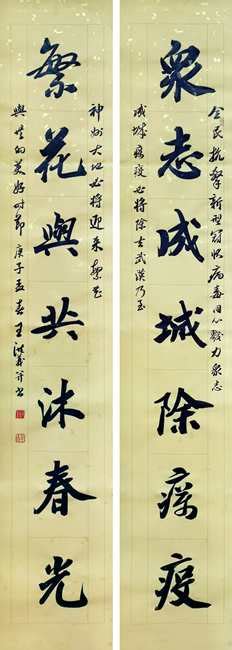 衆志成城除瘼疫
全民抗擊新型冠狀病毒同心戮力衆志
成城瘟疫必將除去武漢乃至
繁花與共沐春光
神州大地必將迎來繁花
與共的美好時節 庚子孟春 王 并書